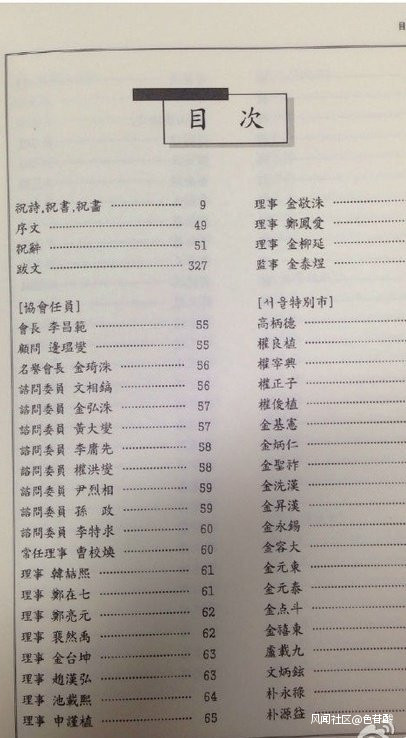 目
目 次
祝詩,祝書,祝畵 9
序文 49
祝辭 51
跋文 327
[協會任員]
會長 李昌範 55
顧問 邊琩燮 55
名譽會長 金琦洙 56
諮問委員 文相鎬 56
諮問委員 金弘洙 57
諮問委員 黃大燮 57
諮問委員 李庸先 58
諮問委員 權洪燮 58
諮問委員 尹烈相 59
諮問委員 孫 政 59
諮問委員 李特求 60
常任理事 曺校煥 60
理事 韓喆熙 61
理事 鄭在七 61
理事 鄭亮元 62
理事 裵然禹 62
理事 金台坤 63
理事 趙漢弘 63
理事 池載熙 64
理事 申謹植 65
理事 金敬洙
理事 鄭鳳愛
理事 金柳延
监事 金泰煜
[서울特別市]
高炳德
權良植
權寧興
權正子
權俊植
金基憲
金炳仁
金聖祚
金洗漢
金昇漢
金永錫
金容大
金元東
金元泰
金点斗
金禧東
盧載九
文炳鉉
朴永祿
朴源益
风闻社区@色苷